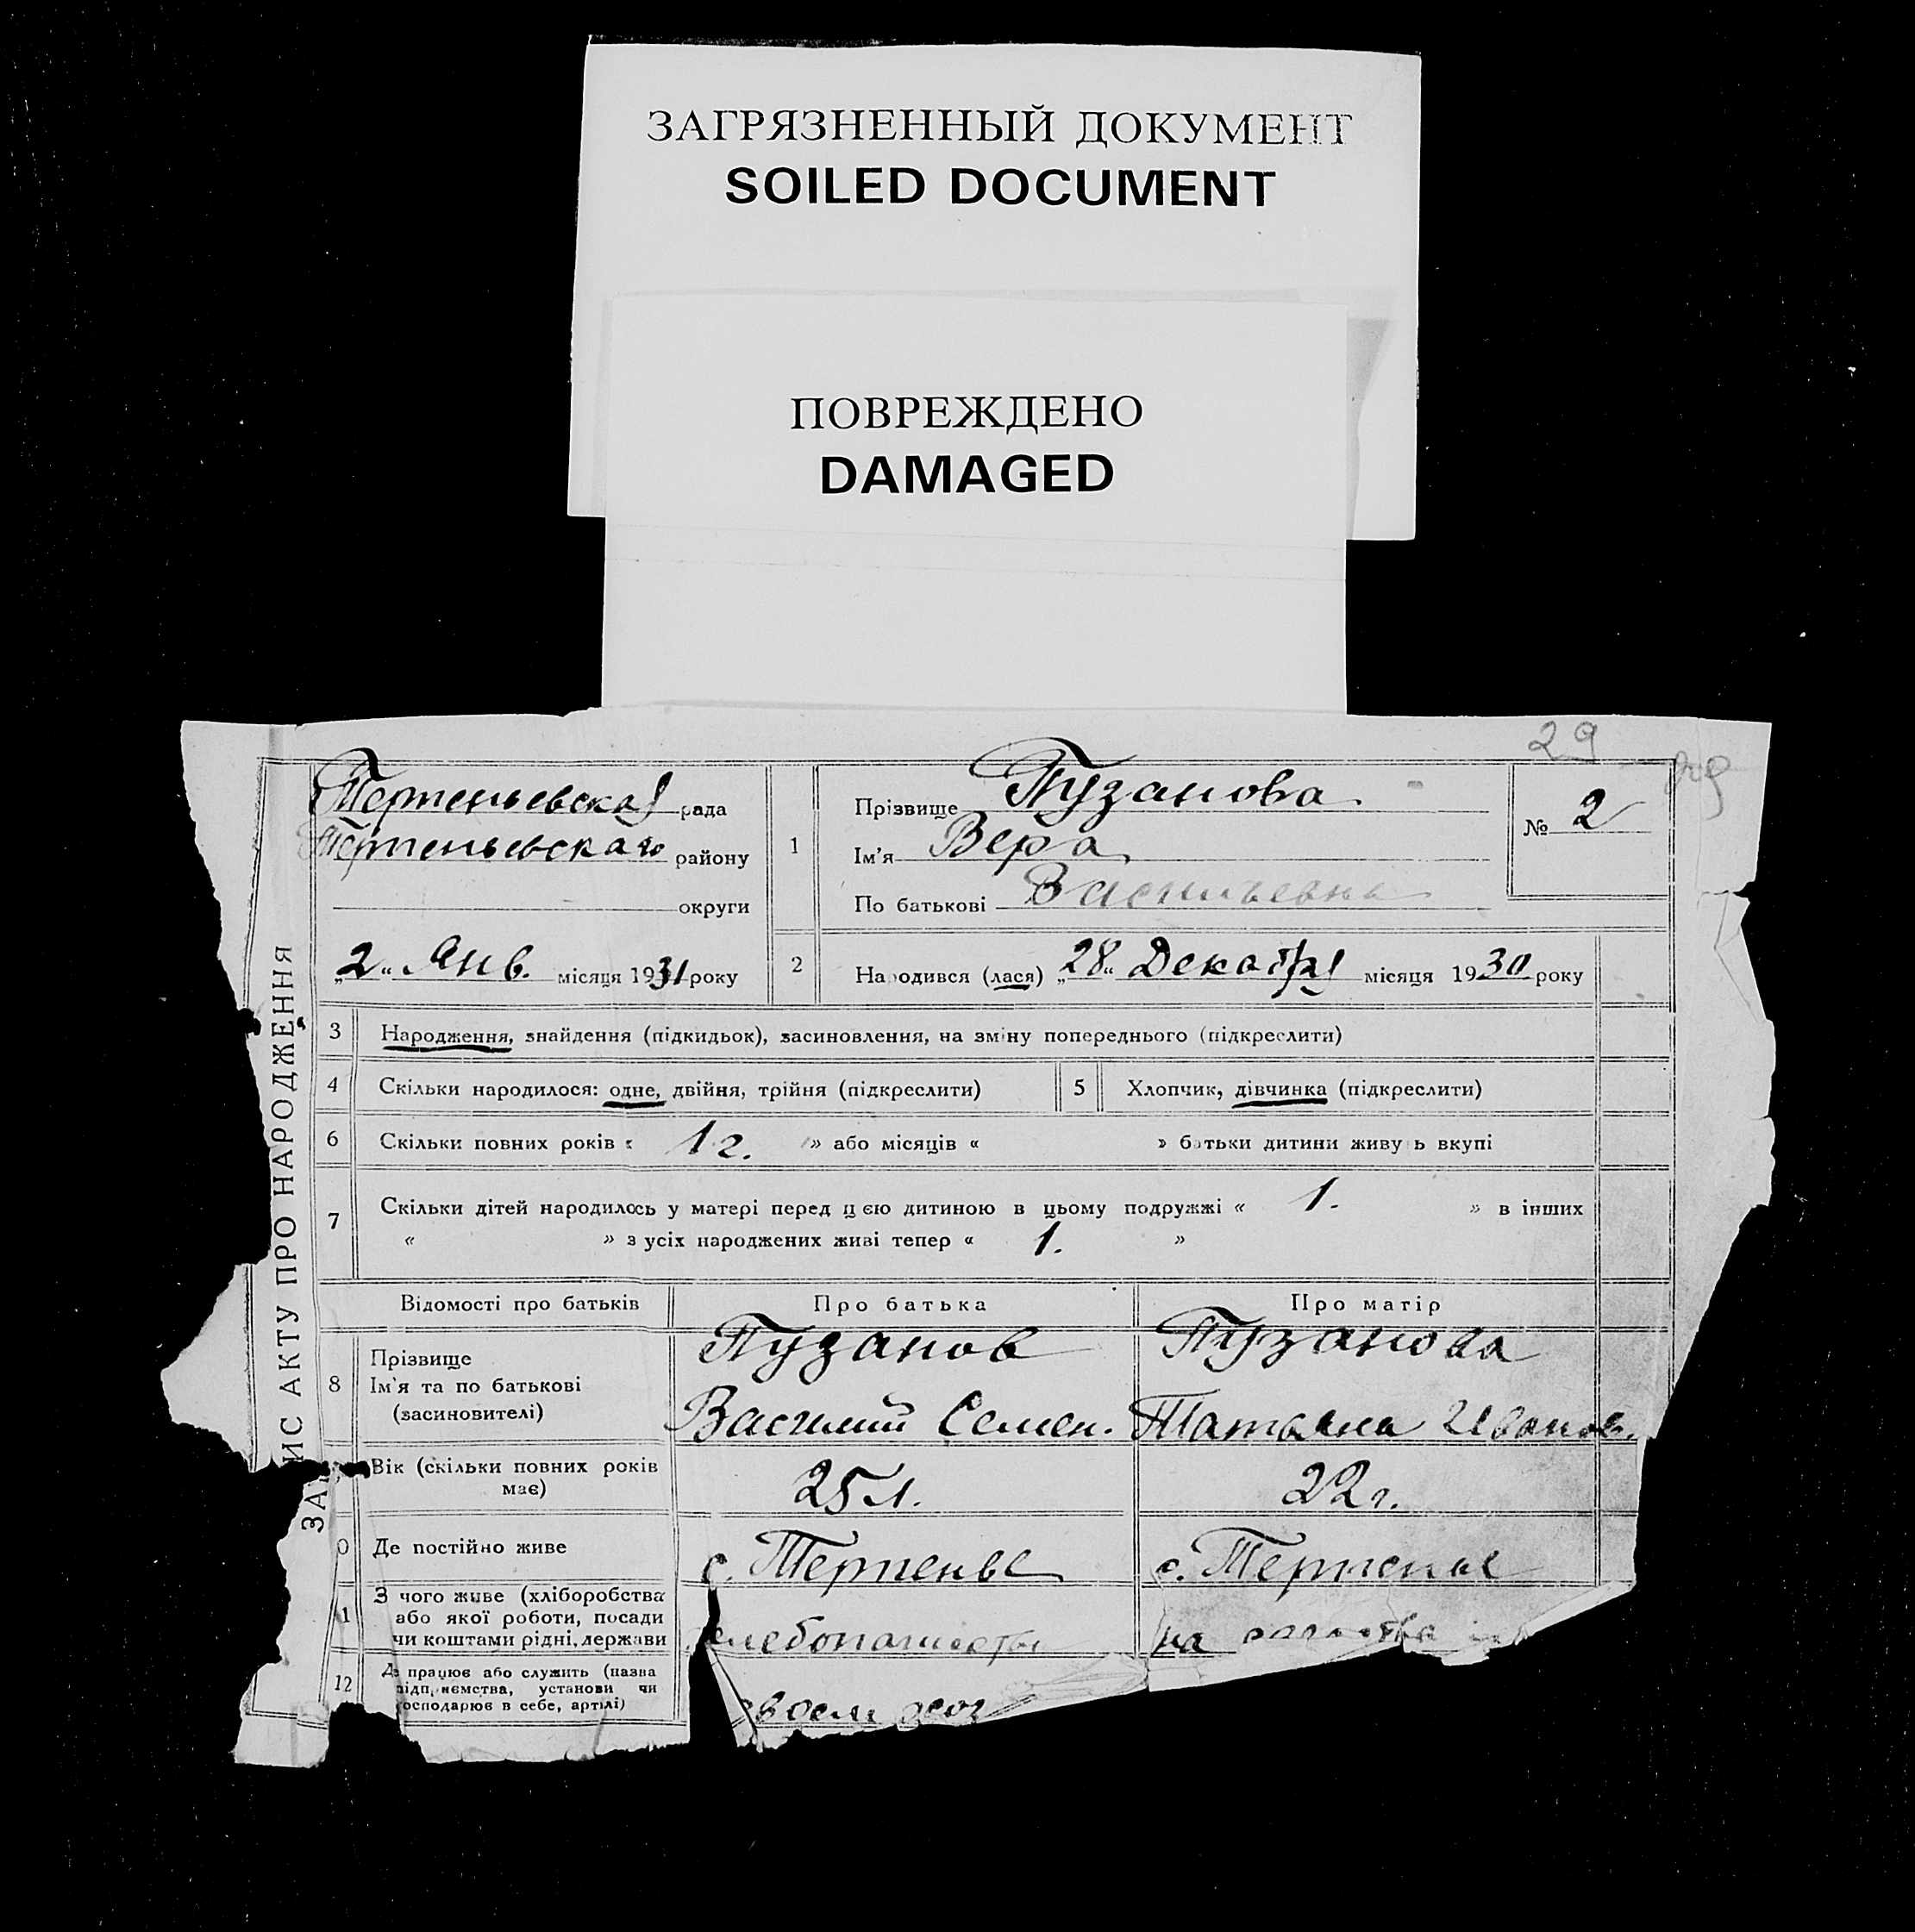 ЗАГРЯЗНЕННЫЙ ДОКУМЕНТ
SOILED DOCUMENT
ПОВРЕЖДЕНО
DAMAGED
29
ЗАПИС АКТУ ПРО НАРОДЖЕННЯ
Терпеньевская рада
Терпеньевскаго району
округи
„2“ Янв. місяця 1931 року
1
Прізвище Пузанова
Ім'я Вера
По батькові Васильевна
№ 2
2
Народився (лася) „28“ Декабря місяця 1930 року
3 Народження, знайдення (підкидьок), засиновлення, на зміну попереднього (підкреслити)
4 Скільки народилося: одне, двійня, трійня (підкреслити) 5 Хлопчик, дівчинка (підкреслити)
6 Скільки повних років « 1 г. » або місяців « » батьки дитини живуть вкупі
7 Скільки дітей народилось у матері перед цією дитиною в цьому подружжі « 1. » в інших
« » з усіх народжених живі тепер « 1. »
Відомості про батьків Про батька Про матір
8 Прізвище Ім'я та по батькові (засиновителі)
Пузанов Пузанова
Василий Семен. Татьяна Иванов.
Вік (скільки повних років має) 25 л. 22 г.
0 Де постійно живе с. Терпенье с. Терпенье
1 З чого живе (хліборобства або якої роботи, посади чи коштами рідні, держави
хлебопашество на
12 Де працює або служить (назва підприємства, установи чи господарює в себе, артілі)
своем